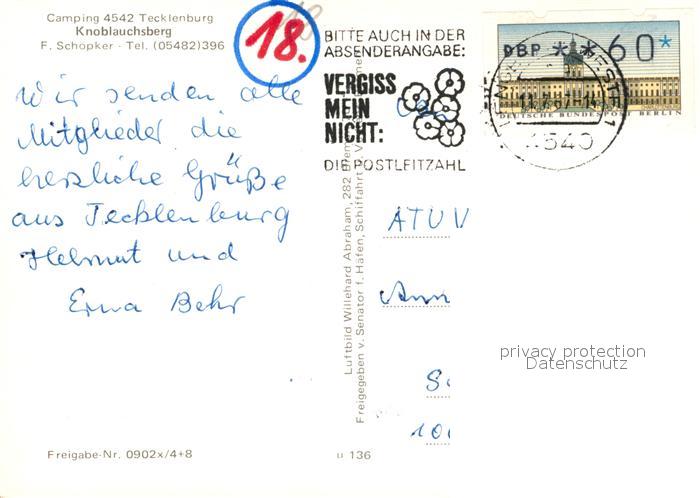 Camping 4542 Tecklenburg
Knoblauchsberg
F. Schöpker - Tel. (05482)396
18.
BITTE AUCH IN DER
ABSENDERANGABE:
VERGISS
MEIN
NICHT:
DIE POSTLEITZAHL
DBP ** 60*
DEUTSCHE BUNDESPOST BERLIN
4540
Wir senden alle
Mitglieder die
herzliche Grüße
aus Tecklenburg
Helmut und
Erna Behr
Luftbild Willehard Abraham, 282
Freigegeben v. Senator f. Häfen, Schiffahrt
ATUV
privacy protection
Datenschutz
Freigabe-Nr. 0902x/4+8
u 136